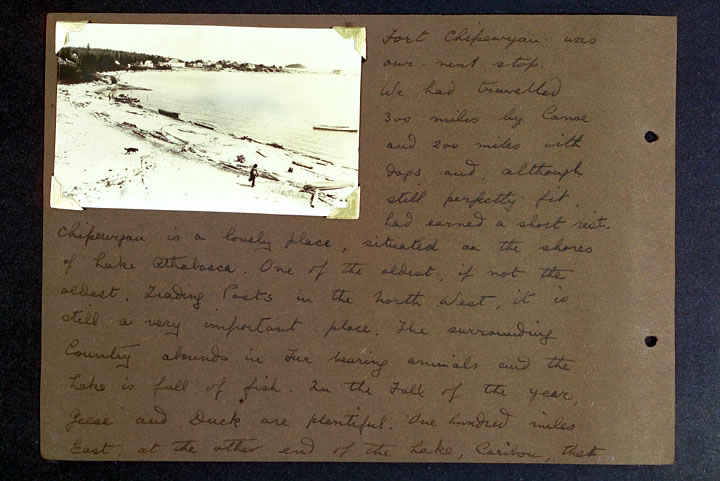 Fort Chipewyan was
our next stop.
We had travelled
300 miles by Canoe
and 200 miles with
dogs and, although
still perfectly fit,
had earned a short rest.
Chipewyan is a lovely place, situated on the shores
of Lake Athabasca. One of the oldest, if not the
oldest, Trading Posts in the North West, it is
still a very important place. The surrounding
Country abounds in Fur bearing animals and the
Lake is full of fish. In the Fall of the year,
Geese and Duck are plentiful. One hundred miles
East, at the other end of the Lake, Caribou, that